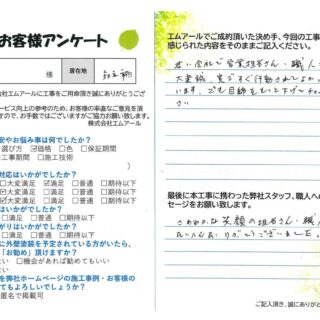 お客様アンケート
様
居在地
会社エムアールに工事をご用命頂き誠にありがとうござ
ービス向上の参考のため、お客様の率直なご意見を頂
ますので、お手数ではございますがご協力お願い致します。
株式会社エムアール
安やお悩み事は何でしたか?
選び方 ☑価格 □色 □保証期間
工事期間 □施工技術
)
対応はいかがでしたか?
□大変満足 ☑満足 □普通 □期待以下
□大変満足 □満足 □普通 □期待以下
はいかがでしたか?
満足 □普通 □期待以下
がりはいかがでしたか?
満足 □普通 □期待以下
に外壁塗装を予定されている方がいたら、
「お勧め」頂けますか?
たい □機会があれば勧めてもいい
ない
を弊社ホームページの施工事例・お客様の
てもよろしいでしょうか?
匿名で掲載可
エムアールでご成約頂いた決め手、今回の工事
感じられた内容をそのままご記入ください。
若い会社で営業担当さん、職人
最後に本工事に携わった弊社スタッフ、職人へ
セージをお願い致します。
さわやかな笑顔の担当さん、職
ありがとうございました。
ご記入頂き、誠にありがと